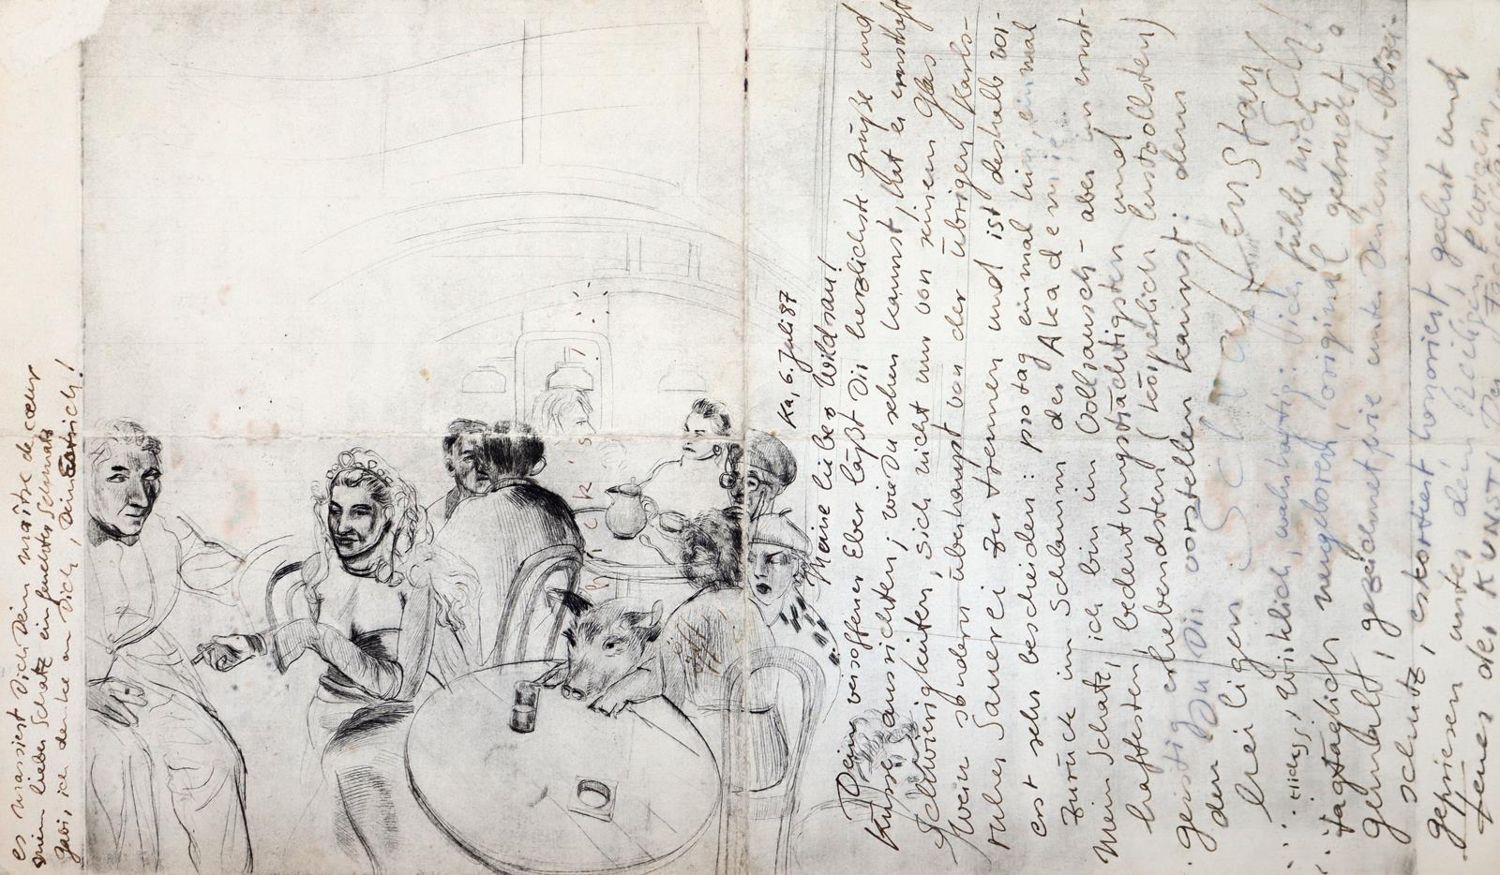 Ka, 6. Juli 87
Meine liebe Wildsau!
Dein versoffener Eber läßt Dir herzlichste Grüße und
Küsse ausrichten; wie Du sehen kannst, hat er ernsthaft
Schwierigkeiten, sich nicht nur von seinem Glas
Wein sondern überhaupt von der übrigen Karls-
ruher Sauerei zu trennen und ist deshalb vor-
erst sehr bescheiden: pro tag einmal hin, einmal
zurück im Schlamm der Akademie,
Mein Schatz, ich bin im Vollrausch - aber im ernst-
haftesten, bedeutungsträchtigsten und
geistig erhebendsten (körperlich lustvollsten)
den Du Dir vorstellen kannst: denn
wirklich, wahrhaftig: ich fühle mich
tagtäglich neugeboren, original gedruckt,
gemalt, gezeichnet wie unter Denkmal-Polizei-
schutz, eskortiert, honoriert, geehrt und
gepriesen unter dem heiligen
der KUNST!
es massiert Dich Dein maître de cœur
mein lieber Schatz ein feuchter Schmatz
Gabi, ich denke an Dich, Dein